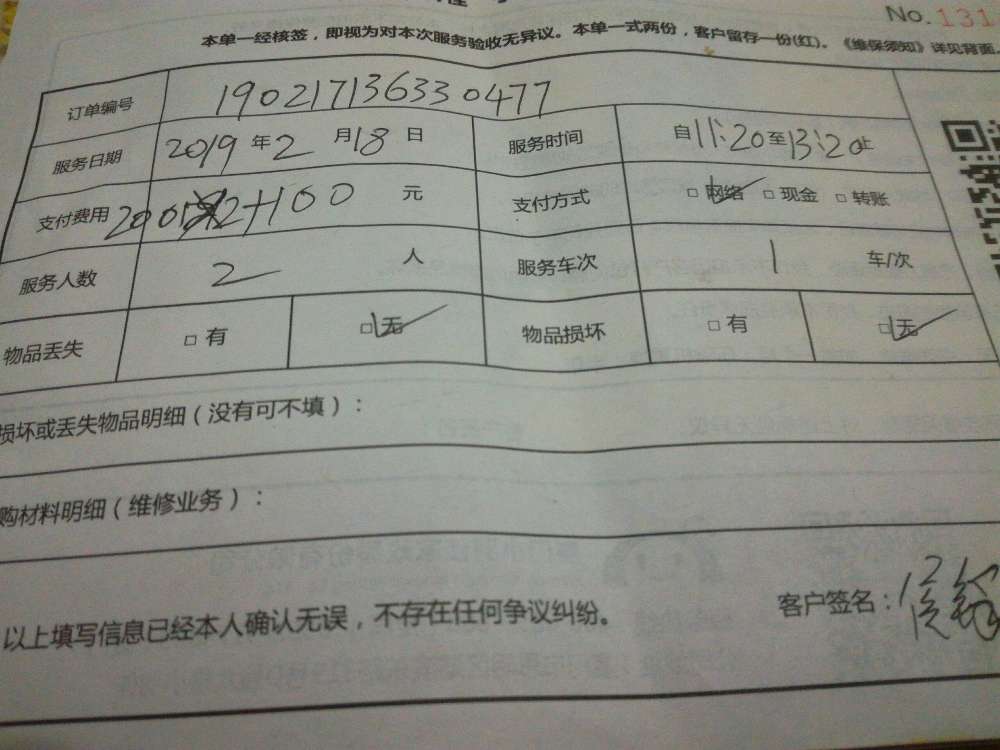 No.131
本单一经核签，即视为对本次服务验收无异议。本单一式两份，客户留存一份(红)。《维保须知》详见背面。
订单编号 190217136330477
服务日期 2019 年 2 月 18 日 服务时间 自 11:20 至 13:20 止
支付费用 200 2+100 元 支付方式 □ 网络 □ 现金 □ 转账
服务人数 2 人 服务车次 1 车/次
物品丢失 □ 有 □ 无 物品损坏 □ 有 □ 无
损坏或丢失物品明细（没有可不填）：
购材料明细（维修业务）：
以上填写信息已经本人确认无误，不存在任何争议纠纷。 客户签名：